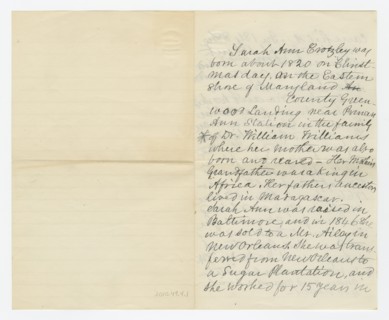 Sarah Ann Crozley was
born about 1820 on Christ
mas day, on the Eastern
shore of Maryland
County Green
wood Landing near Princess
Ann Station in the family
of Dr. William Williams
where her mother was also
born and reared – Her Mothers
grandfather was a king in
Africa Her fathers ancestors
lived in Madagascar.
Sarah Ann was raised in
Baltimore, and in 1846 she
was sold to a Mr. in
New Orleans. She was trans
ferred from New Orleans to
a Sugar Plantation, and
she worked for 15 years in